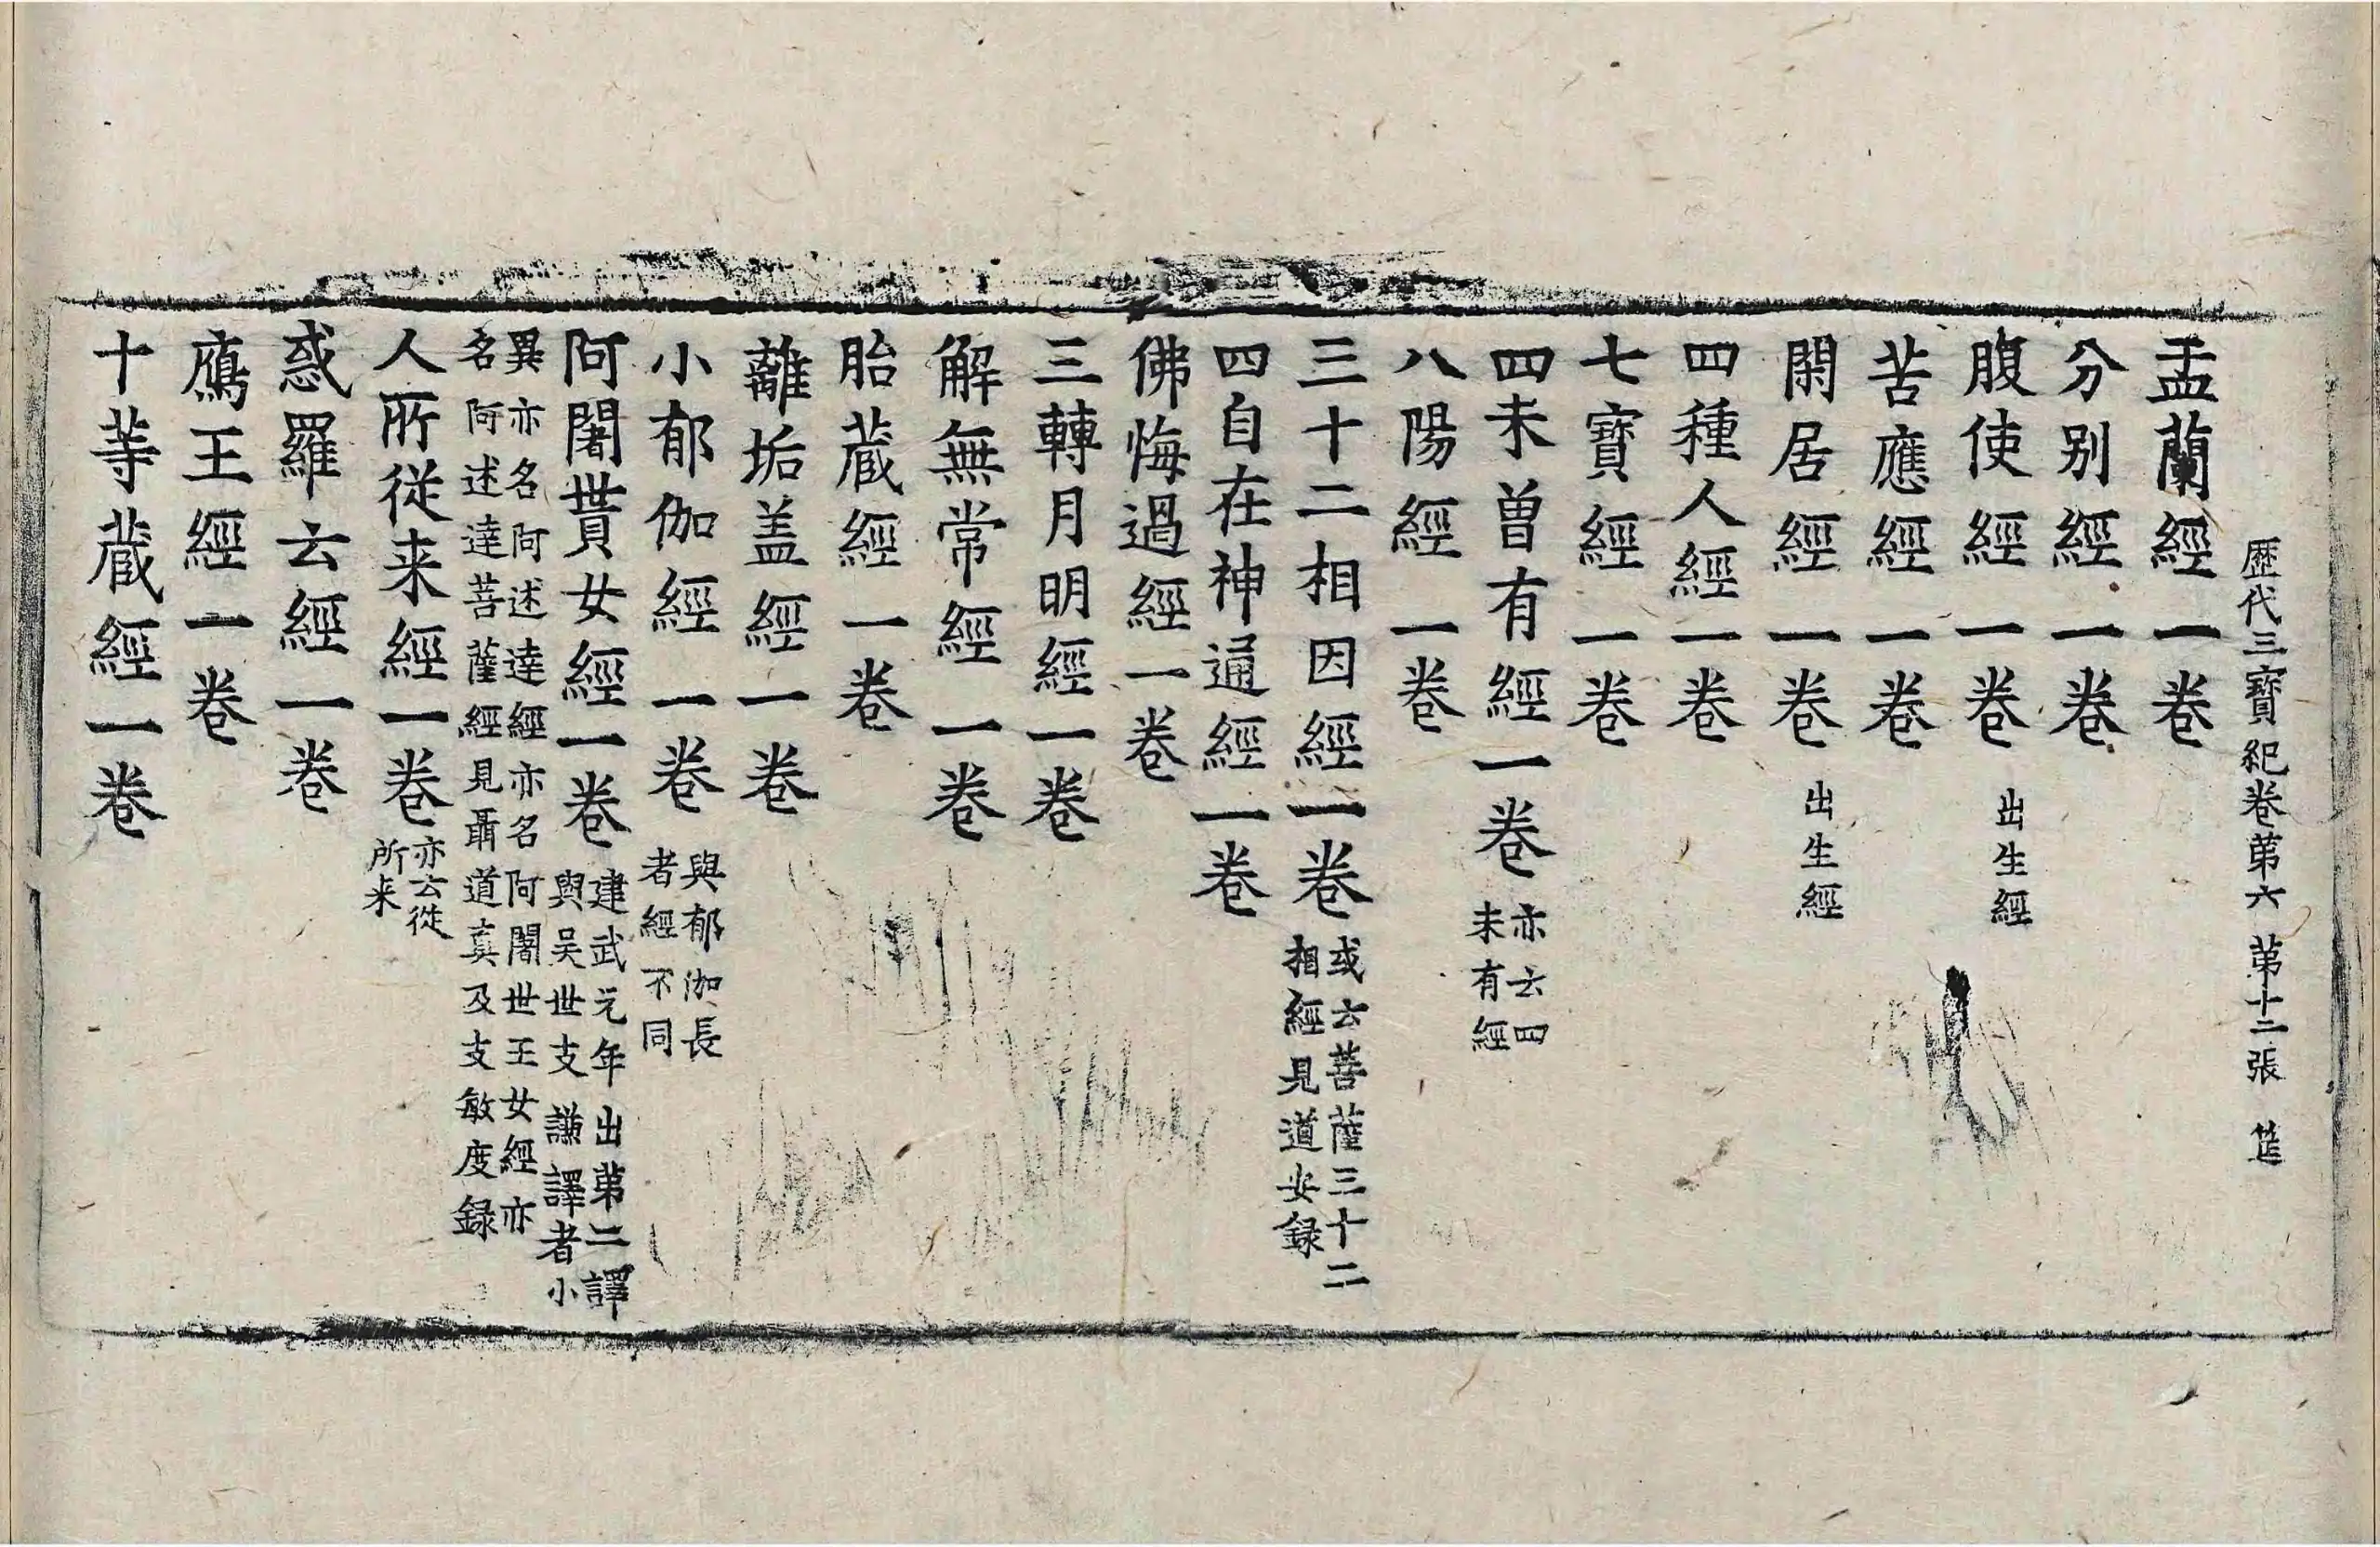 歴代三寶紀卷第六 第十二張 筵
盂蘭經一卷
分别經一卷
腹使經一卷 出生經
苦應經一卷
閑居經一卷 出生經
四種人經一卷
七寶經一卷
四未曽有經一卷 亦云四
未有經
八陽經一卷
三十二相因經一卷 或云菩薩三十二
相經見道安録
四自在神通經一卷
佛悔過經一卷
三轉月明經一卷
解無常經一卷
胎蔵經一卷
離垢盖經一卷
小郁伽經一卷 與郁伽長
者經不同
阿闍貰女經一卷 建武元年出第二譯
與吴世支謙譯者小
異亦名阿述達經亦名阿闍世王女經亦
名阿述達菩薩經見聶道真及支敏度録
人所従来經一卷 亦云従
所来
惑羅云經一卷
鴈王經一卷
十等蔵經一卷